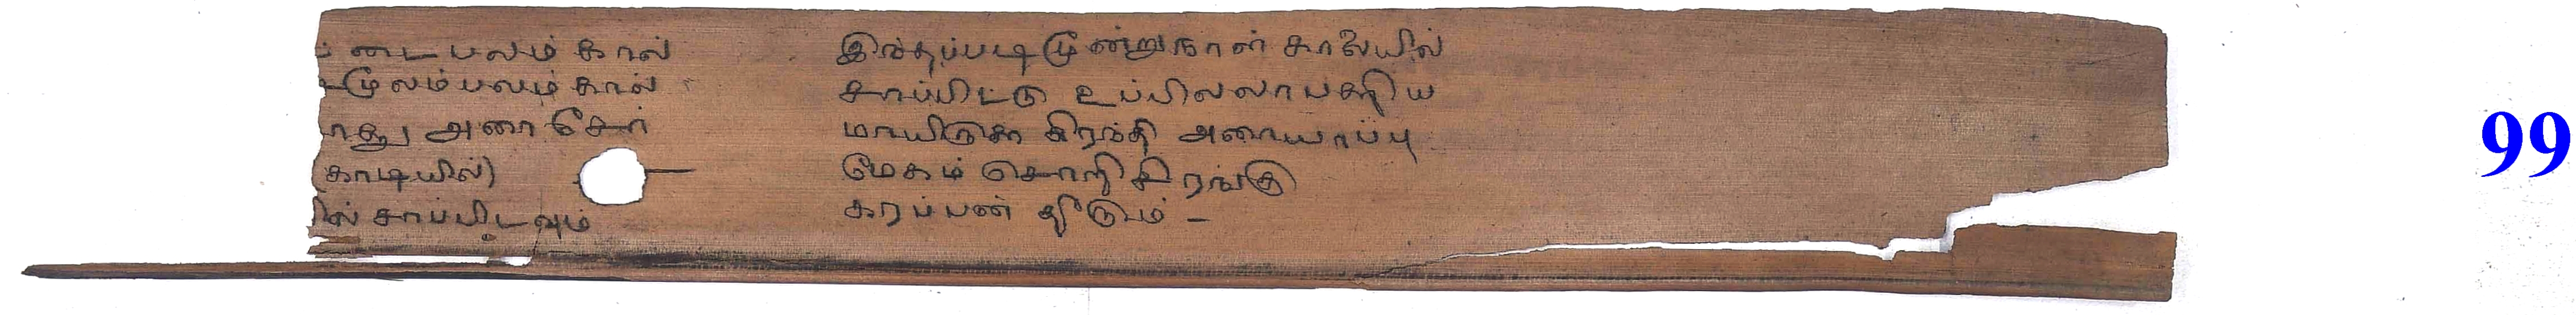 டை பலம் கால்
மூலம் பலம் கால்
அரை சேர்
(காடியில்)
ல் சாப்பிடவும்
இந்தப்படி மூன்று நாள் காலையில்
சாப்பிட்டு உப்பில்லா பத்திய
மாயிருக்க கிரந்தி அரையாப்பு
மேகம் சொறி சிரங்கு
கரப்பன் தீரும் -
99